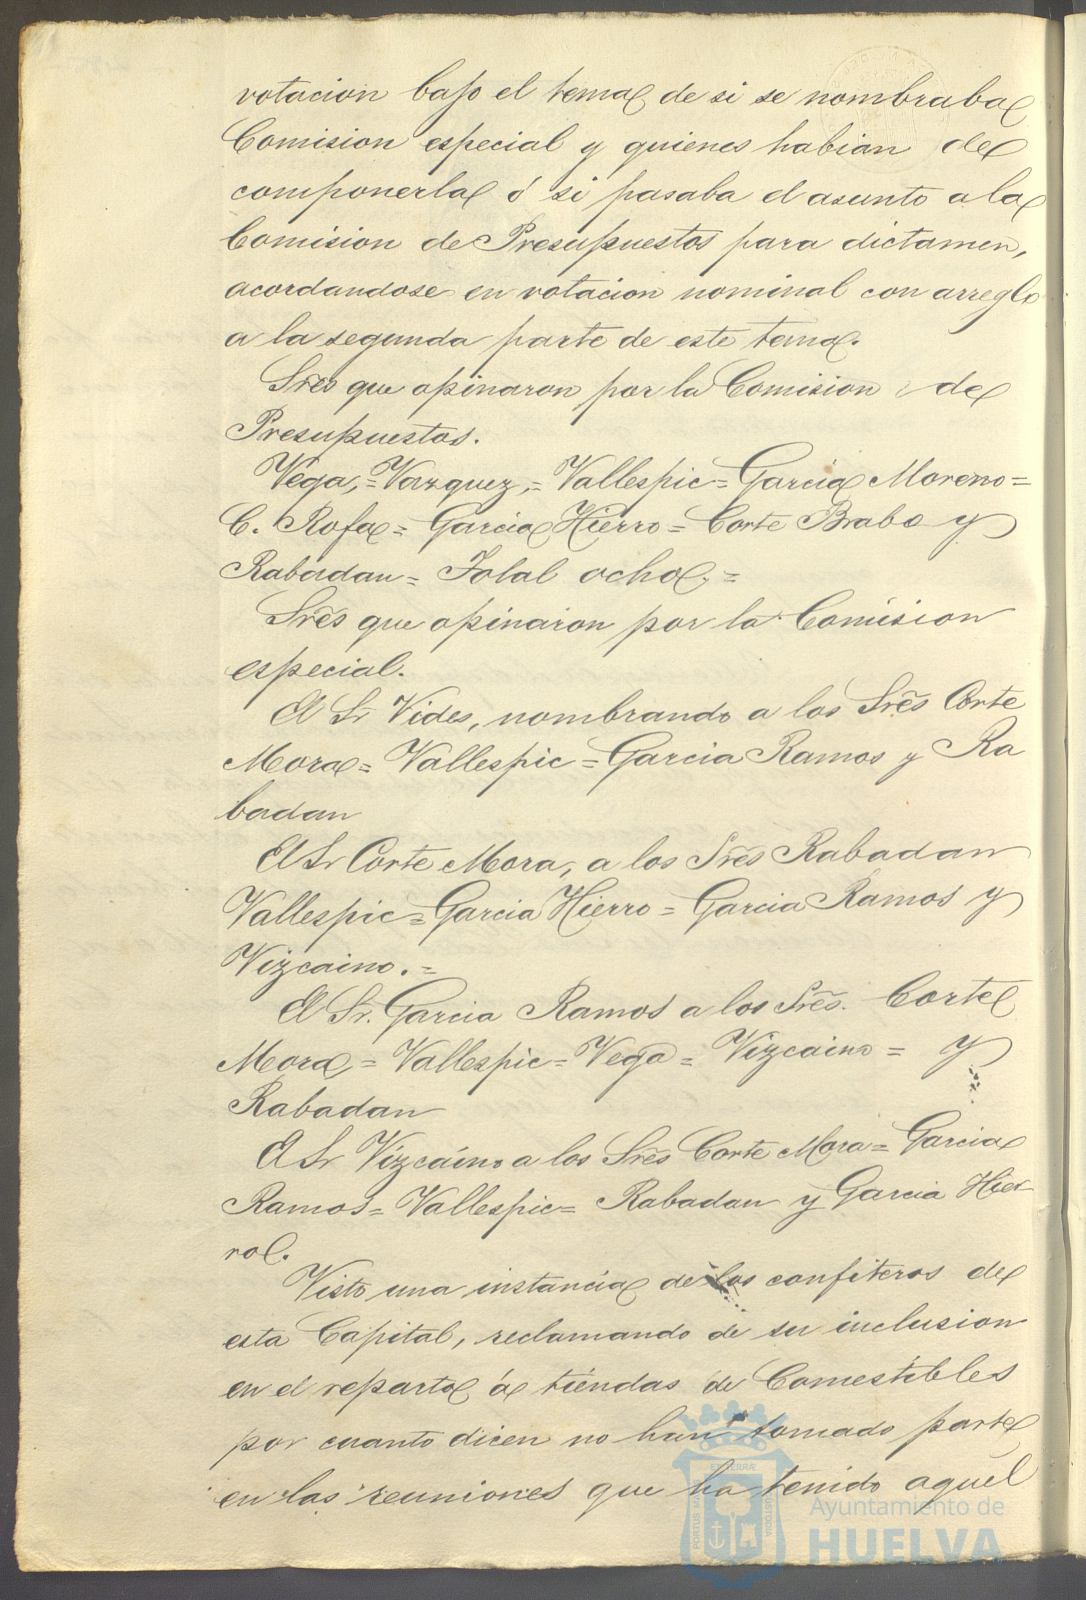 votacion bajo el tema de si se nombraba
Comision especial y quienes habian de
componerla ó si pasaba el asunto a la
Comision de Presupuestos para dictamen,
acordandose en votacion nominal con arreglo
a la segunda parte de este tema.
Sres que opinaron por la Comision de
Presupuestos.
Vega,=Vazquez,=Vallespic=Garcia Moreno=
C. Rofa=Garcia Hierro=Corte Brabo y
Rabadan=Total ocho,=
Sres que opinaron por la Comision
especial.
El Sr Vides, nombrando a los Sres Corte
Mora=Vallespic=Garcia Ramos y Ra
badan
El Sr Corte Mora, a los Sres Rabadan
Vallespic=Garcia Hierro=Garcia Ramos y
Vizcaino.=
El Sr. Garcia Ramos a los Sres. Corte
Mora=Vallespic=Vega=Vizcaino= y
Rabadan
El Sr Vizcaino a los Sres Corte Mora=Garcia
Ramos=Vallespic=Rabadan y Garcia Hier
ro.
Visto una instancia de los confiteros de
esta Capital, reclamando de su inclusion
en el reparto á tiendas de Comestibles
por cuanto dicen no han tomado parte
en las reuniones que ha tenido aquel
Ayuntamiento de
HUELVA